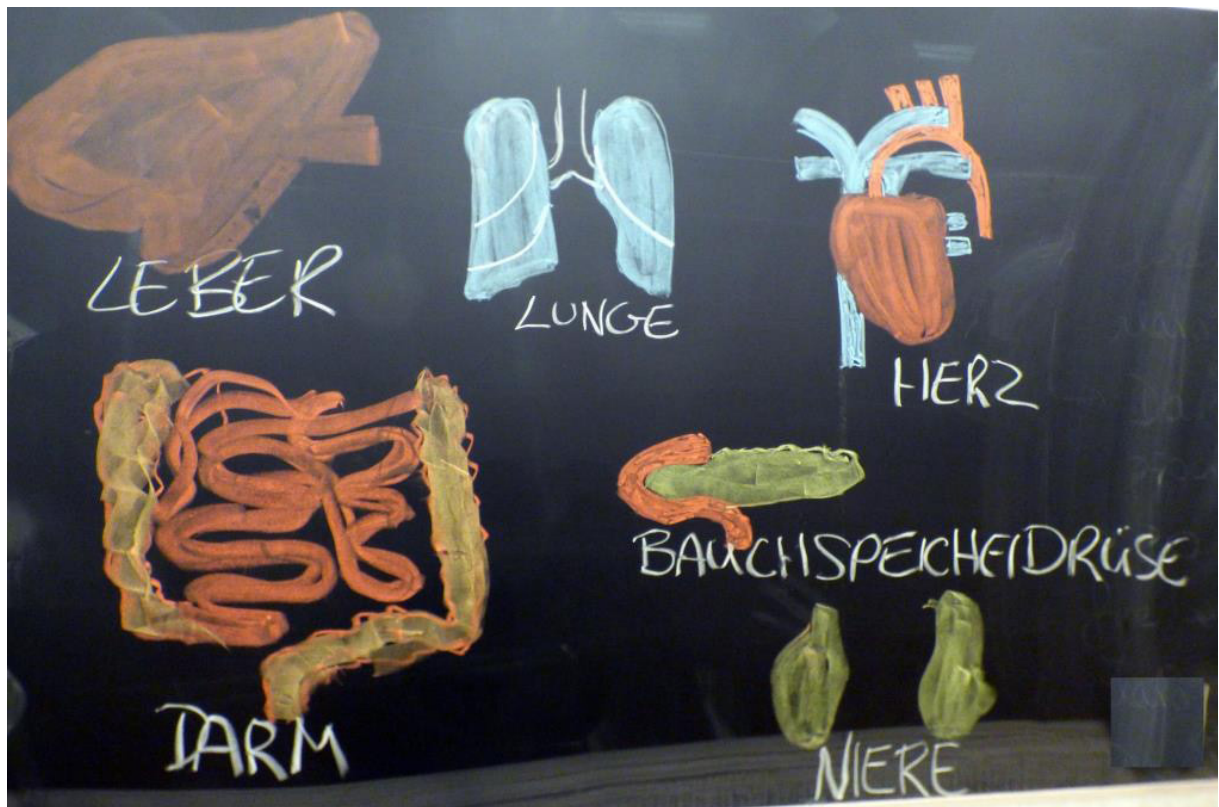 LEBER
LUNGE
HERZ
DARM
BAUCHSPEICHELDRÜSE
NIERE